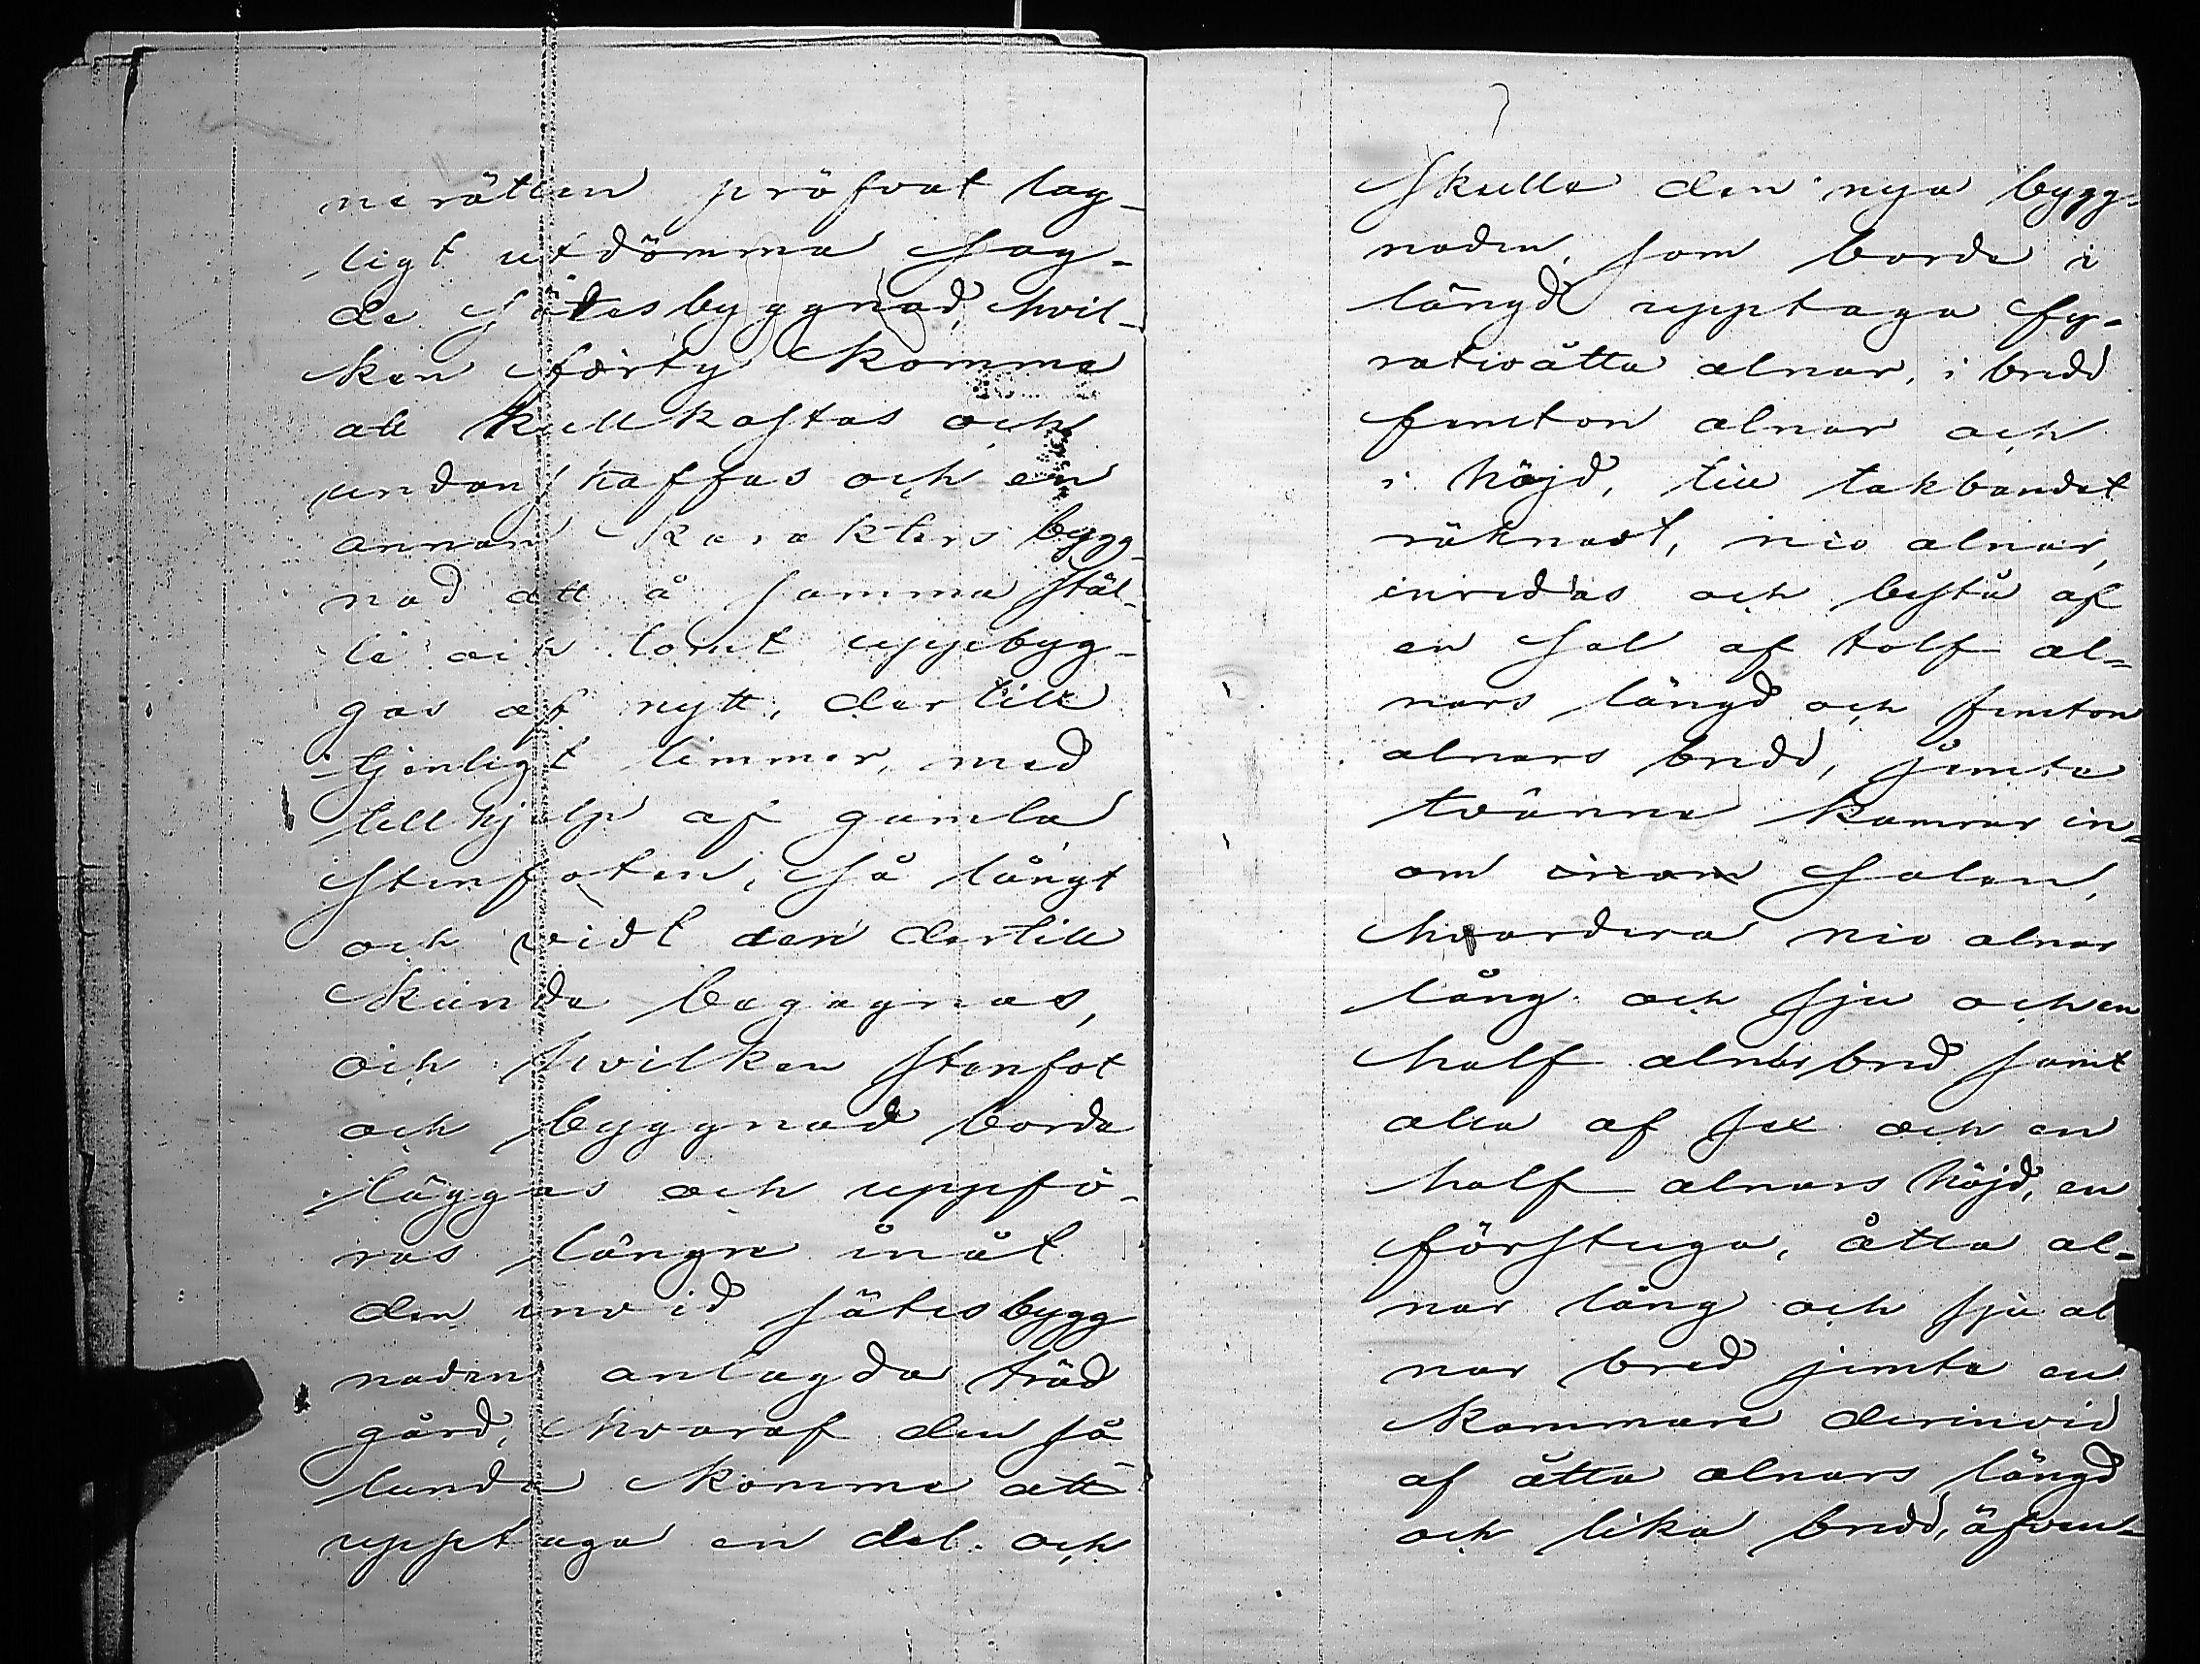 nerätten pröfvat lag-
ligt utdömma sag-
de sätesbyggnad, hvil-
ken förty komme
att kullkastas och
undanskaffas och en
annan karakters bygg-
nad att å samma stäl-
le och tomt uppbyg-
gas af nytt, dertill
tjenligt timmer, med
tillhjelp af gamla
stenfoten, så långt
och vidt den dertill
kunde begagnas,
och hvilken stenfot
och byggnad borde
läggas och uppfö-
ras längre inåt
den invid sätesbygg
naden anlagda träd
gård, hvaraf den så
lunda komme att
upptaga en del. och
Skulle den nya bygg-
naden, som borde i
längd upptaga fy-
ratioåtta alnar, i bredd
femton alnar och
i höjd, till takbandet
räknadt, nio alnar,
inredas och bestå af
en sal af tolf al-
nars längd och femton
alnars bredd, jemte
tvänne kamrar in-
om inom salen,
hvardera nio alnar
lång och sju och en
half alnar bred samt
alla af sex och en
half alnars höjd, en
förstuga, åtta al-
nar lång och sju al
nar bred jemte en
kammare derinvid
af åtta alnars längd
och lika bredd, äfven-